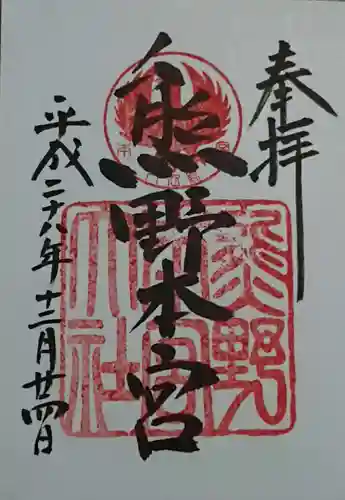 奉拝
熊野本宮
平成二十八年十二月廿四日
熊野本宮大社